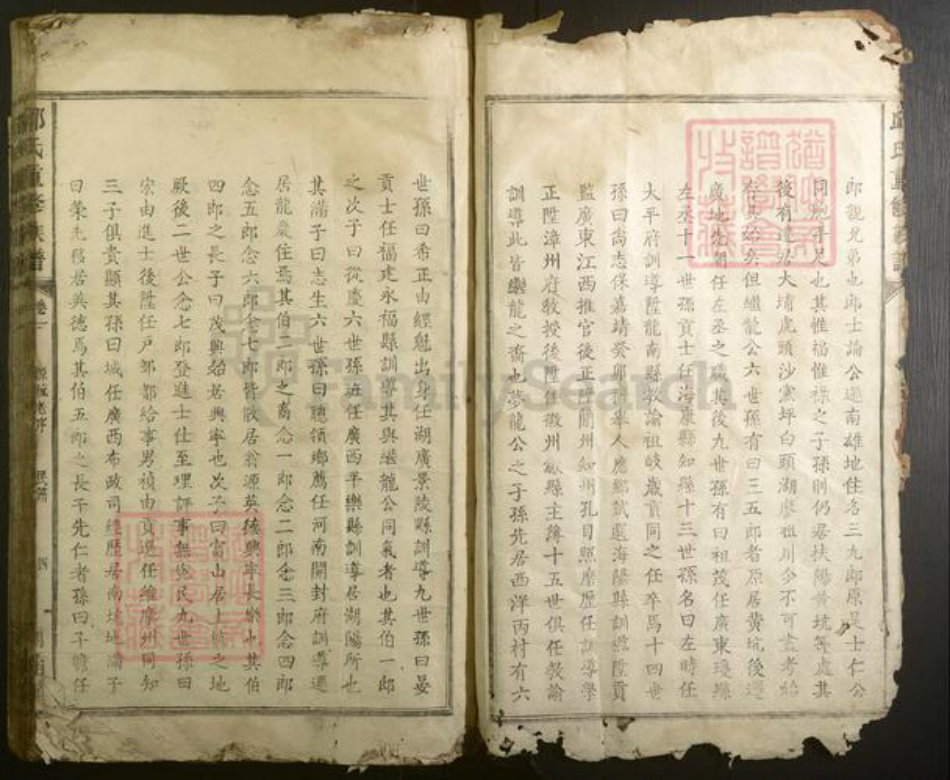 郎觀兄弟也邱士諭公遷南雄地住名三九郎原是士仁公
同胞手足也其惟福惟祿之子孫則仍居扶陽黃坑等處其
後有遷居大埔虎頭沙黨坪白頭湖廖祖川分不可盡考始
存其始矣但繼龍公六世孫有曰三五郎者原居黃坑後遷
廣地先朝任左丞之職其後九世孫有曰祖茂任廣東瓊縣
左丞十一世孫貢士任海康縣知縣十三世孫名曰左時任
太平府訓導陞龍南縣教諭祖岐歲貢同之任卒馬十四世
孫曰尚志保嘉靖癸卯科舉人應鄉試選海陽縣訓導陞貢
監廣東江西推官後正陞蘭州知州孔目照磨歷任訓導學
正陞漳州府教授後陞任徽州 縣主簿十五世俱任教諭
訓導此皆繼龍之裔也夢龍公之子孫先居西洋丙村有六
世孫曰希正由經魁出身任湖廣景陵縣訓導九世孫曰晏
貢士任福建永福縣訓導其與繼龍公同氣者也其伯一郎
之次子曰從慶六世孫班任廣西平樂縣訓導居湖陽所也
其滿子曰志生六世孫曰聰領鄉薦任河南開封府訓導遷
居龍巖住焉其伯二郎之裔念一郎念二郎念三郎念四郎
念五郎念六郎念七郎皆散居翁源英德興寧長樂也其伯
四郎之長子曰茂興始居興寧也次子曰富山居上 之地
厥後二世公念七郎登進士仕至理評事無 民九世孫曰
宏由進士後陞任戶部都給事男禎由貢選任維摩州同知
三子俱貴顯其孫曰城任廣西布政司經歷居南坑地滿子
曰榮先移居英德馬其伯五郎之長子先仁者孫曰子贍任
邱氏重修族譜
卷一
民籍
四